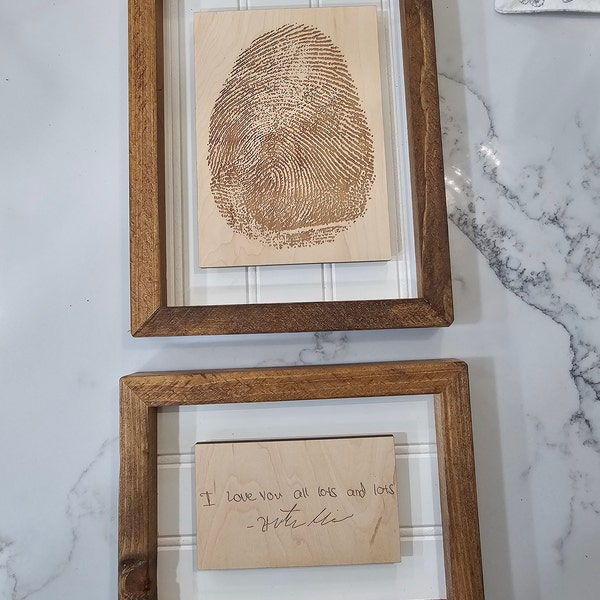 I Love you all lots and lots